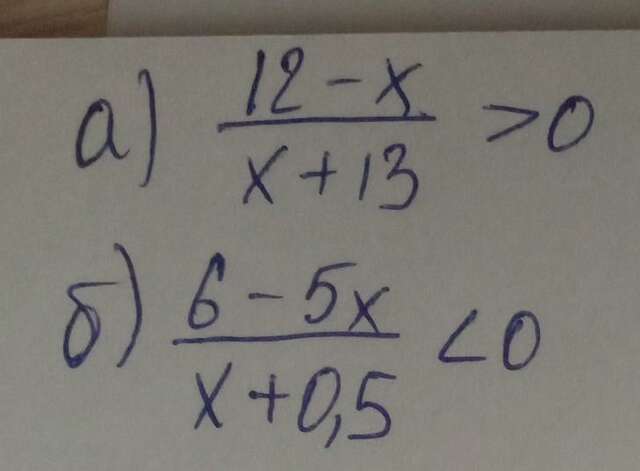 а) (12 - x)/(x + 13) > 0
б) (6 - 5x)/(x + 0,5) < 0